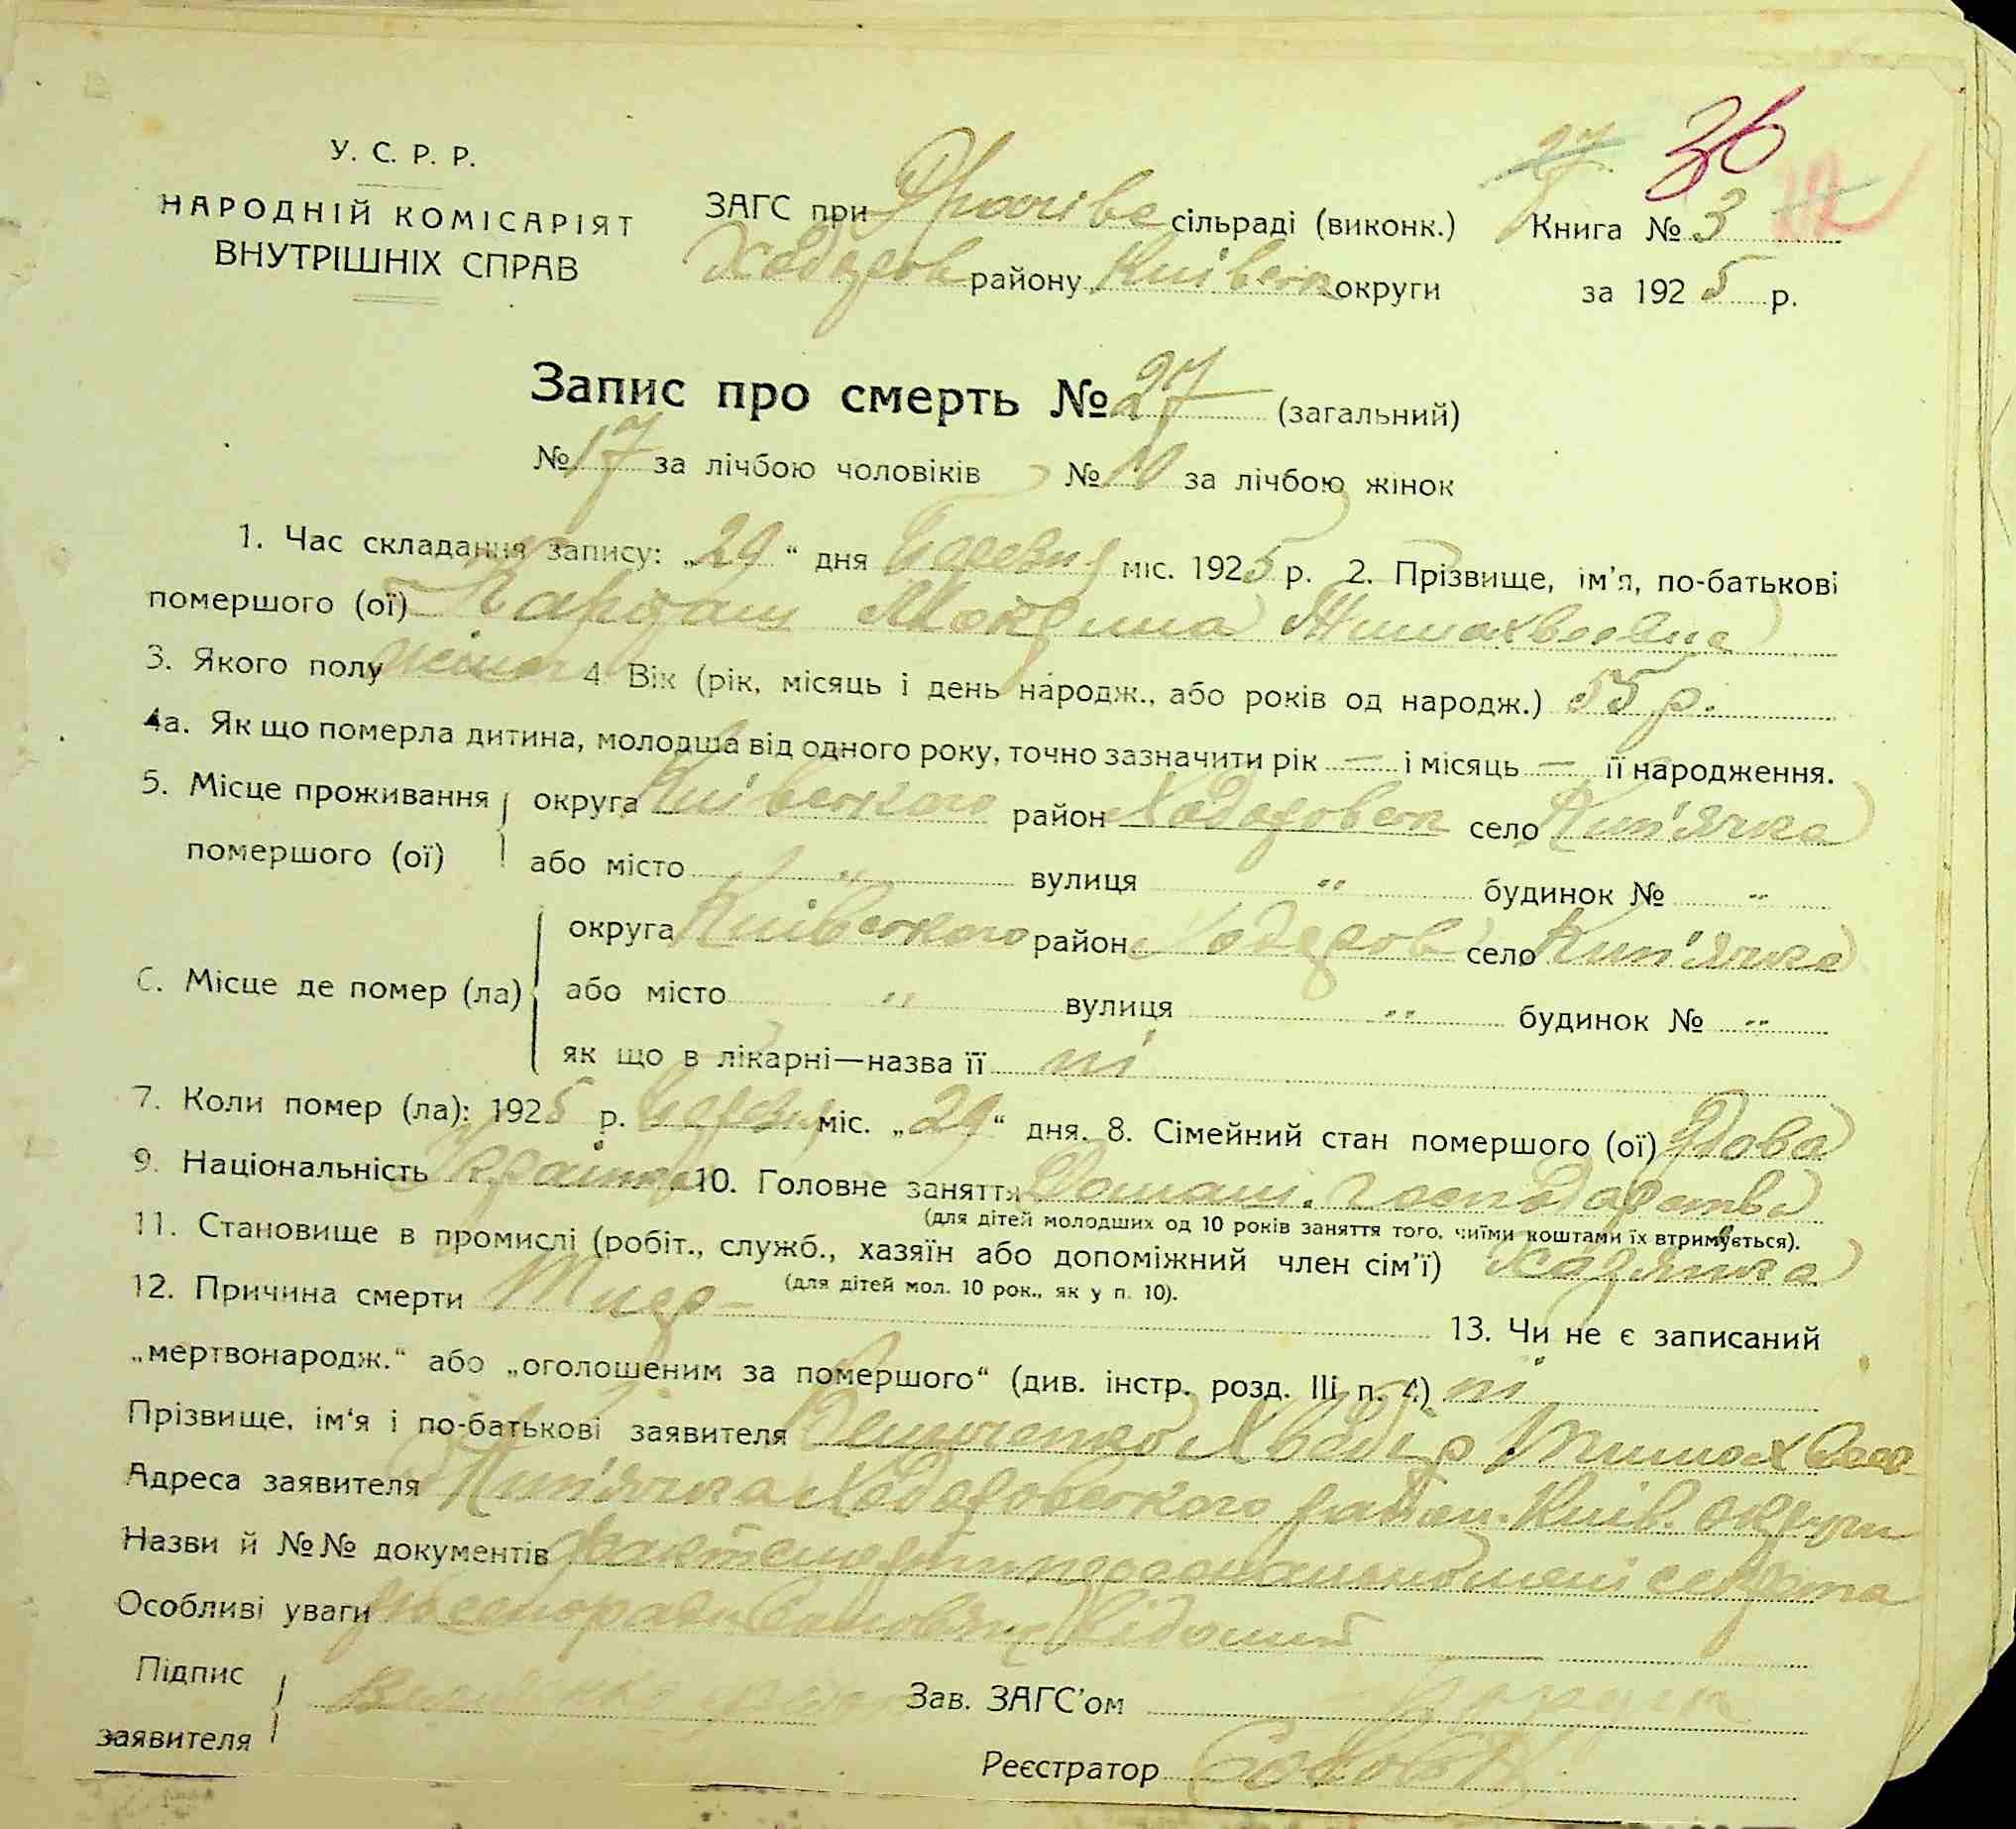 27 36 12
У. С. Р. Р.
НАРОДНІЙ КОМІСАРІЯТ
ВНУТРІШНІХ СПРАВ
ЗАГС при сільраді (виконк.) Книга № 3
Ходоров району Київськ округи за 1925 р.
Запис про смерть № 27 (загальний)
№ 17 за лічбою чоловіків № 10 за лічбою жінок
1. Час складання запису: „29“ дня Березня міс. 1925 р. 2. Прізвище, ім'я, по-батькові
помершого (ої) Мокрина Тимохвеевна
3. Якого полу жіноч 4. Вік (рік, місяць і день народж., або років од народж.) 55 р.
4а. Як що померла дитина, молодша від одного року, точно зазначити рік — і місяць — її народження.
5. Місце проживання округа Київського район Ходоровськ село Кип'ячка
помершого (ої) або місто „ вулиця „ будинок № „
6. Місце де помер (ла) округа Київського район Ходоров село Кип'ячка
або місто „ вулиця „ будинок № „
як що в лікарні—назва її ні
7. Коли помер (ла): 1925 р. березня міс. „29“ дня. 8. Сімейний стан помершого (ої) Вдова
9. Національність Українка 10. Головне заняття Домаш. господарство
(для дітей молодших од 10 років заняття того, чиїми коштами їх втримується).
11. Становище в промислі (робіт., служб., хазяїн або допоміжний член сім'ї) хазяйка
(для дітей мол. 10 рок., як у п. 10).
12. Причина смерти 13. Чи не є записаний
„мертвонародж.“ або „оголошеним за помершого“ (див. інстр. розд. III п. 4) ні
Прізвище, ім'я і по-батькові заявителя Хведір Тимохвеев
Адреса заявителя Кип'ячка Ходоровського район. Київ. округи
Назви й №№ документів факт смерти персонально мені секрета
Особливі уваги відомий
Підпис
заявителя
Зав. ЗАГС'ом
Реєстратор